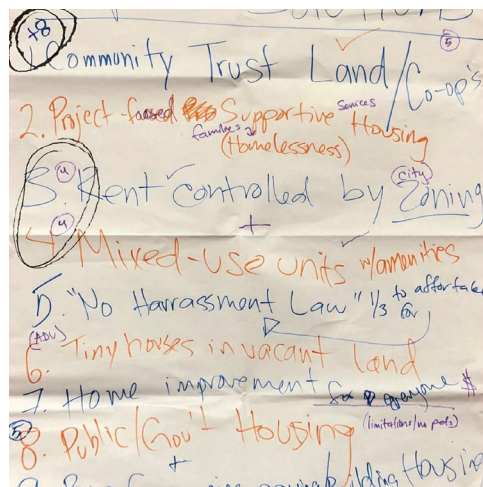 Solutions
+8
1. Community Trust Land/Co-op's
5
2. Project-based Supportive Services Housing
families
(Homelessness)
4
3. Rent controlled by Zoning
city
+
4
4. Mixed-use units w/amenities
5. "No Harrassment Law" 1/3 to
for
(ADU)
6. Tiny houses in vacant land
7. Home improvement for everyone $
(limitations/no pools)
5
8. Public/Gov't Housing
+
Housing